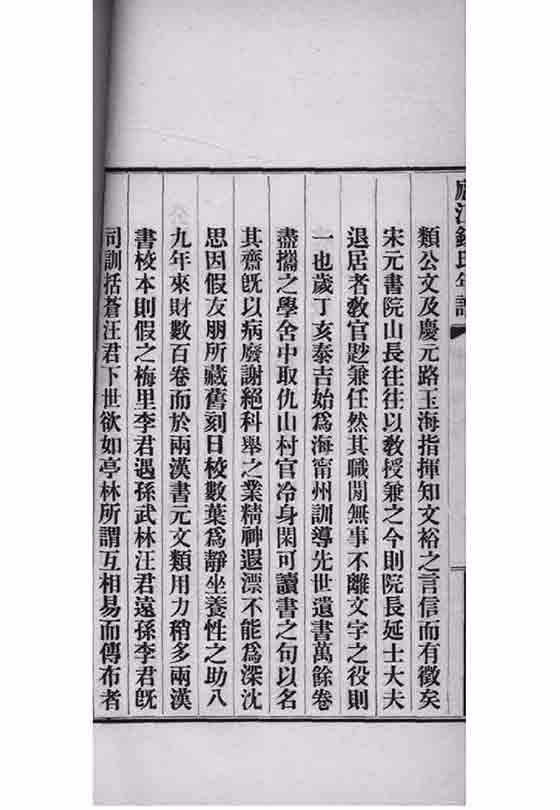 類公文及慶元路玉海指揮知文裕之言信而有徵矣
宋元書院山長往往以教授兼之今則院長延士大夫
退居者教官尟兼任然其職閒無事不離文字之役則
一也歲丁亥泰吉始爲海甯州訓導先世遺書萬餘卷
盡攜之學舍中取仇山村官冷身閑可讀書之句以名
其齋旣以病廢謝絕科舉之業精神遐漂不能爲深沈
思因假友朋所藏舊刻日校數葉爲靜坐養性之助八
九年來財數百卷而於兩漢書元文類用力稍多兩漢
書校本則假之梅里李君遇孫武林汪君遠孫李君旣
司訓括蒼汪君下世欲如亭林所謂互相易而傳布者